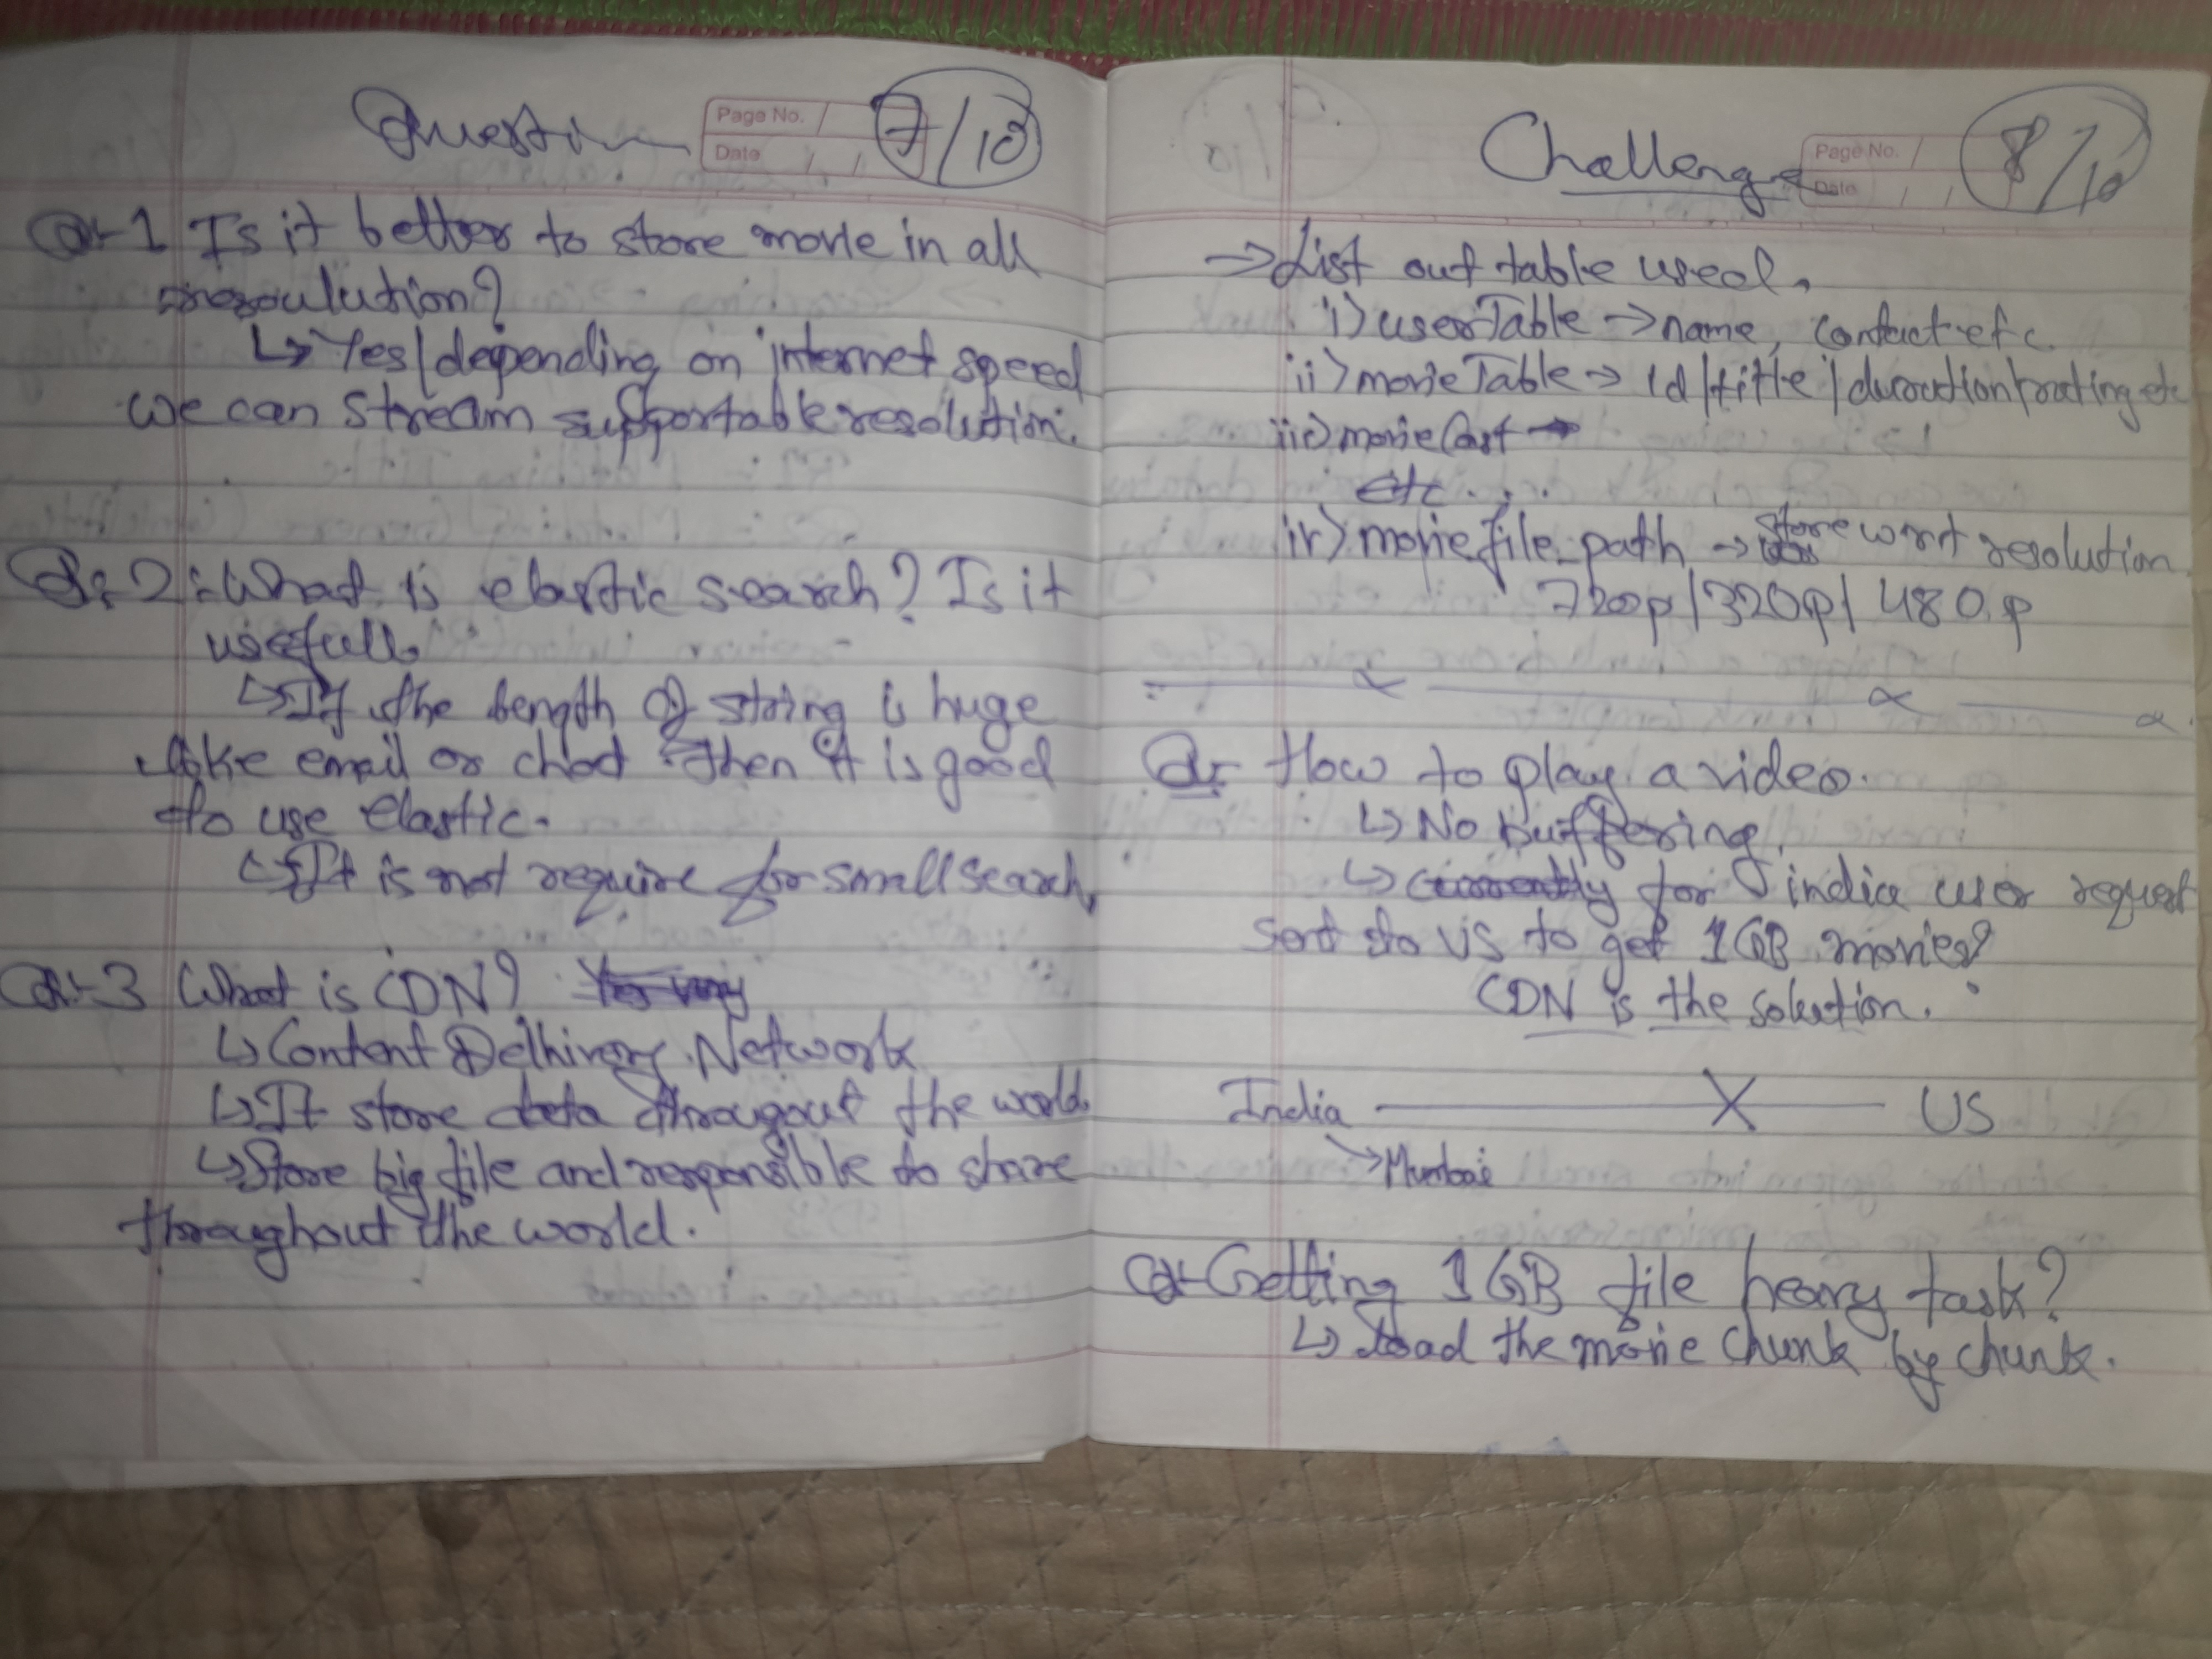 Question
Page No.
Date
7/10
Q:-1 Is it better to store movie in all
resoulution?
↳ Yes/depending on internet speed
we can stream supportable resolution.
Q:2:- What is elastic search? Is it
usefull.
↳ If the length of string is huge
like email or chat then it is good
to use elastic.
↳ It is not require for small search
Q:-3 What is CDN?
↳ Contant Delhivery Network
↳ It store data througout the world.
↳ Store big file and responsible to store
throughout the world.
Challenge
Page No.
Date
8/10
→ List out table used,
i) userTable → name, contact etc.
ii) movieTable → id/title/duration/rating etc
iii) movieCast →
etc
iv) movie_file_path → Store wrt resolution
720p/320p/480p
Q:- How to play a video.
↳ No buffering
↳ Currently for india user request
sent to US to get 1GB movies?
CDN is the solution.
India ——— X ——— US
→ Mumbai
Q:- Getting 1GB file heavy task?
↳ Load the movie chunk by chunk.